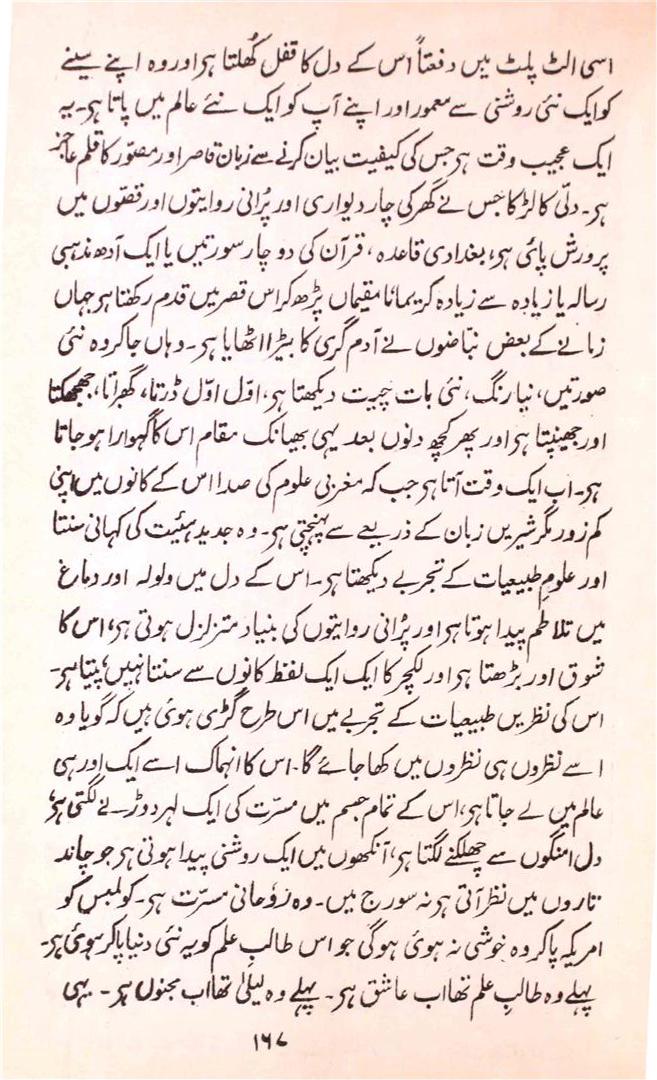 اسی الٹ پلٹ میں دفعتاً اس کے دل کا قفل کُھلتا ہر اور وہ اپنے سینے
کو ایک نئی روشنی سے معمور اور اپنے آپ کو ایک نئے عالم میں پاتا ہر۔ یہ
ایک عجیب وقت ہر جس کی کیفیت بیان کرنے سے زبان قاصر اور مصوّر کا قلم عاجز
ہر۔ دلّی کا لڑکا جس نے گھر کی چار دیواری اور پُرانی روایتوں اور قصّوں میں
پرورش پائی ہر، بغدادی قاعدہ، قرآن کی دو چار سورتیں یا ایک آدھ مذہبی
رسالہ یا زیادہ سے زیادہ کریما نا مقیماں پڑھ کر اس قصر میں قدم رکھتا ہر جہاں
زمانے کے بعض نبّاضوں نے آدم گری کا بیڑا اٹھایا ہر۔ وہاں جاکر وہ نئی
صورتیں، نیا رنگ، نئی بات چیت دیکھتا ہر، اوّل اوّل ڈرتا، گھبراتا، جھجکتا
اور جھینپتا ہر اور پھر کچھ دنوں بعد یہی بھیانک مقام اس کا گہوارا ہوجاتا
ہر۔ اب ایک وقت آتا ہر جب کہ مغربی علوم کی صدا اس کے کانوں میں اپنی
کم زور مگر شیریں زبان کے ذریعے سے پہنچتی ہر۔ وہ جدید ہیئت کی کہانی سنتا
اور علومِ طبیعیات کے تجربے دیکھتا ہر۔ اس کے دل میں ولولہ اور دماغ
میں تلاطم پیدا ہوتا ہر اور پُرانی روایتوں کی بنیاد متزلزل ہوتی ہر، اس کا
شوق اور بڑھتا ہر اور لکچر کا ایک ایک لفظ کانوں سے سنتا نہیں، پیتا ہر۔
اس کی نظریں طبیعیات کے تجربے میں اس طرح گڑی ہوئی ہیں کہ گویا وہ
اسے نظروں ہی نظروں میں کھا جائے گا۔ اس کا انہماک اسے ایک اور ہی
عالم میں لے جاتا ہر، اس کے تمام جسم میں مسرّت کی ایک لہر دوڑنے لگتی ہر،
دل امنگوں سے چھلکنے لگتا ہر، آنکھوں میں ایک روشنی پیدا ہوتی ہر جو چاند
تاروں میں نظر آتی ہر نہ سورج میں۔ وہ رُوحانی مسرّت ہر۔ کولمبس کو
امریکہ پاکر وہ خوشی نہ ہوئی ہوگی جو اس طالب علم کو یہ نئی دنیا پاکر ہوئی ہر۔
پہلے وہ طالبِ علم تھا اب عاشق ہر۔ پہلے وہ لیلیٰ تھا اب مجنوں ہر۔ یہی
۱۶۷